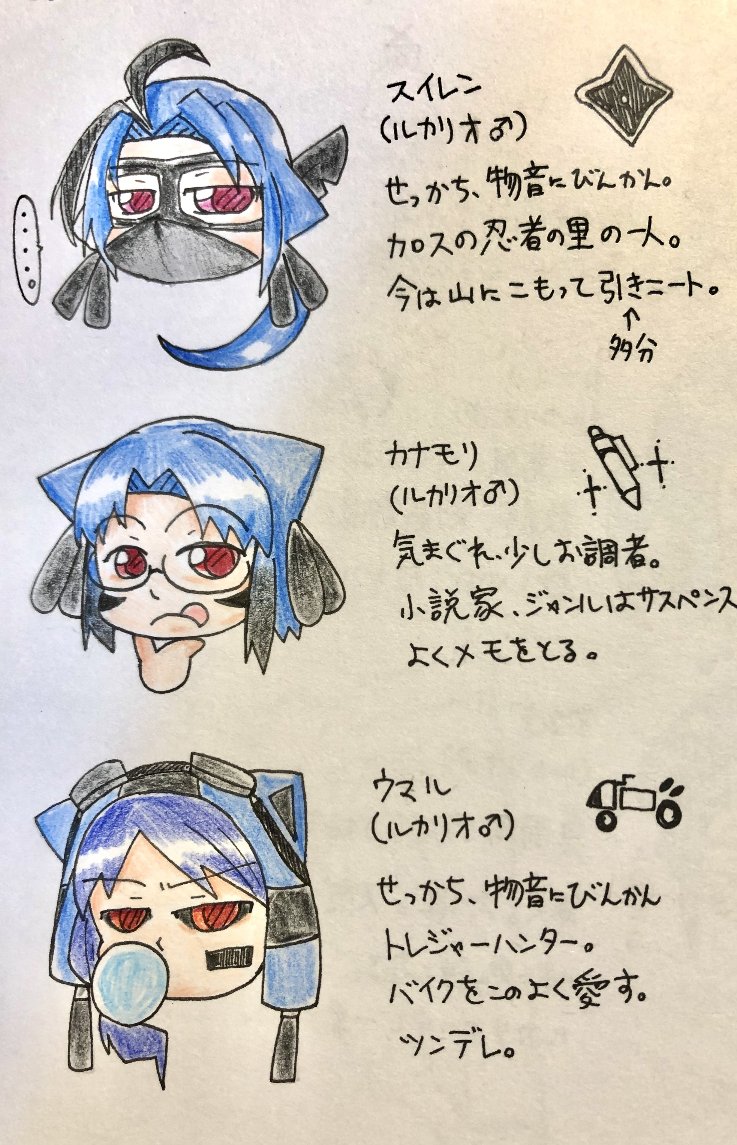 スイレン
(ルカリオ♂)
せっかち、物音にびんかん。
カロスの忍者の里の一人。
今は山にこもって引きニート。
↑
多分
カナモリ
(ルカリオ♂)
気まぐれ、少しお調者。
小説家、ジャンルはサスペンス
よくメモをとる。
ウマル
(ルカリオ♂)
せっかち、物音にびんかん
トレジャーハンター。
バイクをこのよく愛す。
ツンデレ。